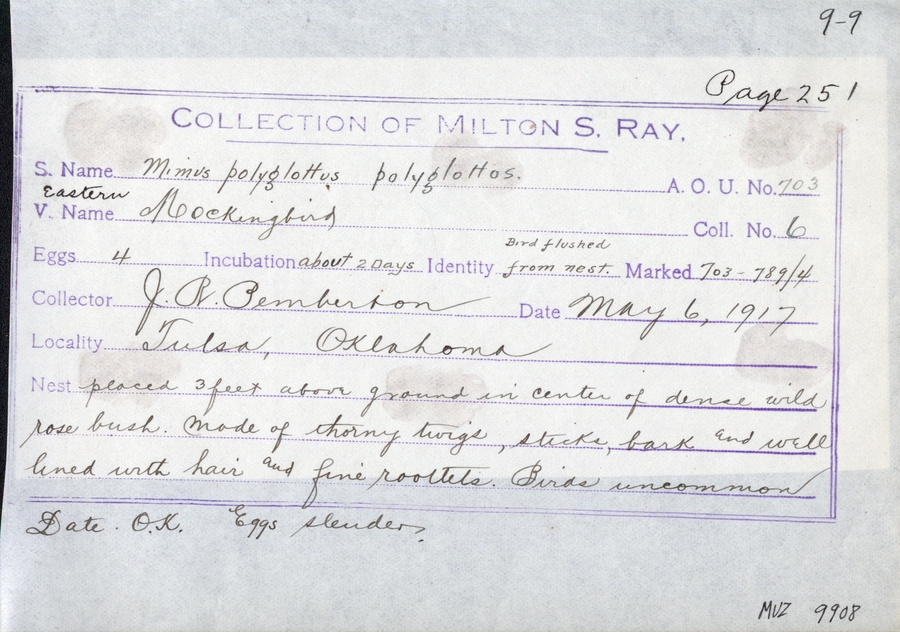 9-9
Page 251
COLLECTION OF MILTON S. RAY.
S. Name Mimus polyglottus polyglottos. A. O. U. No. 703
Eastern
V. Name Mockingbird Coll. No. 6
Bird flushed
Eggs 4 Incubation about 2 Days Identity from nest. Marked 703-789/4
Collector J. R. Pemberton Date May 6, 1917
Locality Tulsa, Oklahoma
Nest placed 3 feet above ground in center of dense wild
rose bush. Made of thorny twigs, sticks, bark and well
lined with hair and fine roottets. Birds uncommon
Date. O.K. Eggs slender.
MVZ 9908